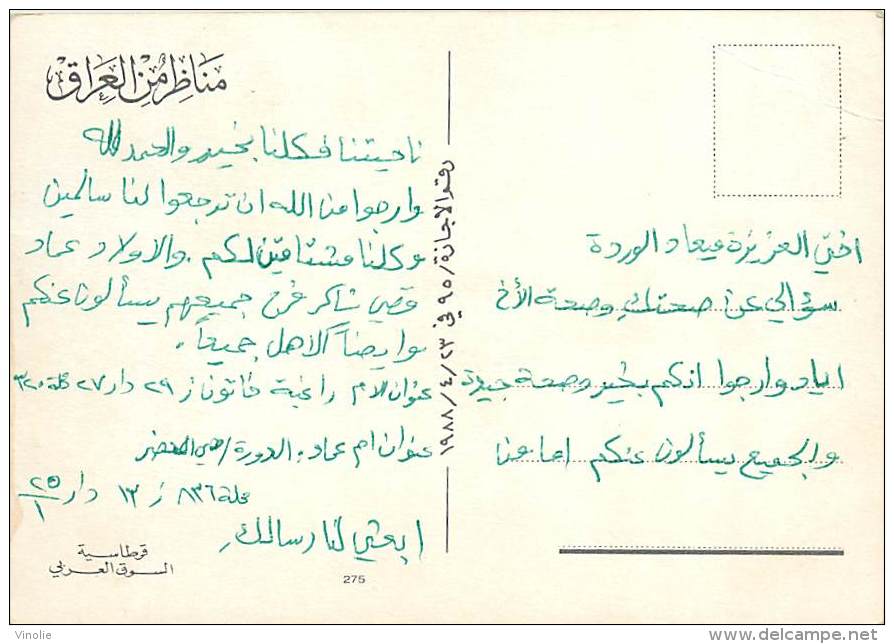 مناظر من العراق
اختي العزيزة ميعاد الوردة
سؤالي عن صحتك وصحة الأخ
اياد وارجوا انكم بخير وصحة جيدة
والجميع يسألون عنكم اما من
ناحيتنا فكلنا بخير والحمد لله
وارجوا من الله ان ترجعوا لنا سالمين
وكلنا مشتاقين لكم والاولاد عماد
قصي شاكر فرح جميعهم يسألون عنكم
وايضاً الاهل جميعاً.
عنوان الام راغبة خاتون ز ٢٩ دار ٢٧ محلة ٣٢٠
عنوان ام عماد. الدورة/حي
محلة ٨٣٦ ز ١٣ دار ٢٥/١
ابعثي لنا رسالك
رقم الاجازة/٩٥ في ١٩٨٨/٤/٢٣
قرطاسية
السوق العربي
275
Vinolie
delcampe.net